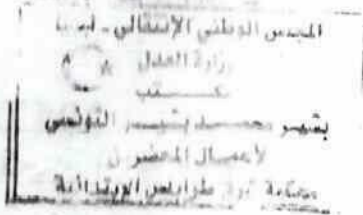 المجلس الوطني الإنتقالي - ليبيا
وزارة العدل
مكتب
بشير محمد بشير التونسي
لأعمال المحضرين
محكمة شرق طرابلس الابتدائية